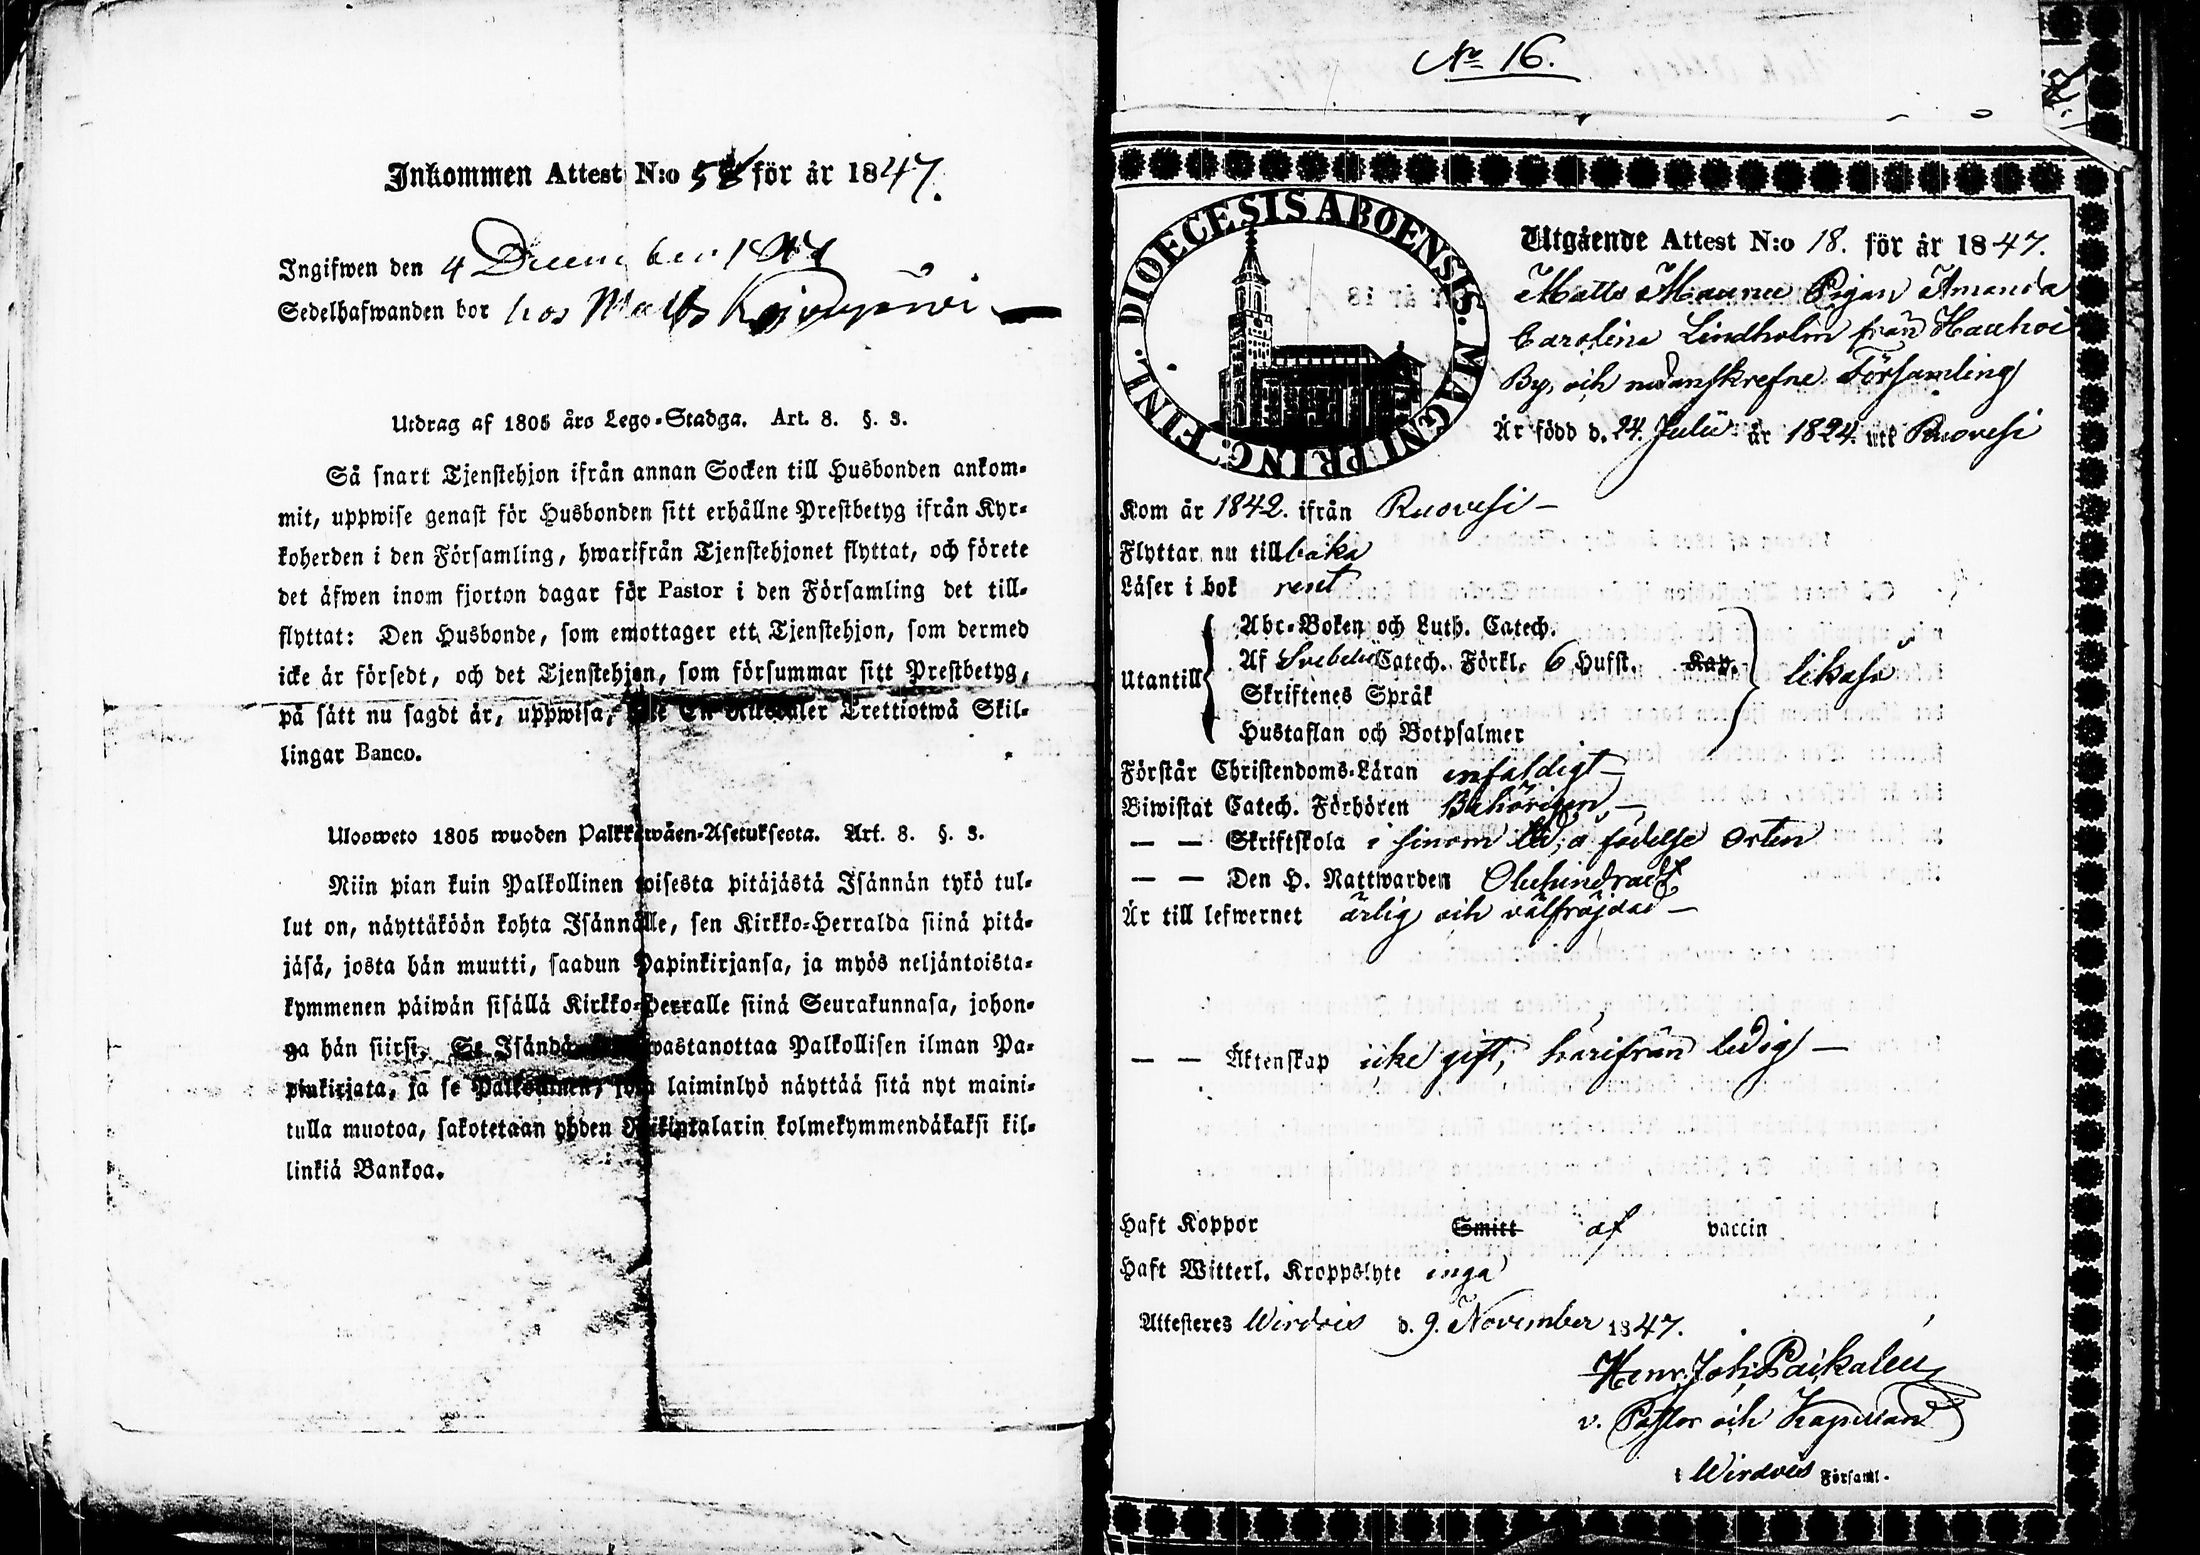 Inkommen Attest N:o 58 för år 1847.
Ingifwen den 4 December 1847
Sedelhafwanden bor hos Matts
Utdrag af 1805 års Lego-Stadga. Art. 8. §. 3.
Så snart Tjenstehjon ifrån annan Socken till Husbonden ankom-
mit, uppwise genast för Husbonden sitt erhållne Prestbetyg ifrån Kyr-
koherden i den Församling, hwarifrån Tjenstehjonet flyttat, och förete
det äfwen inom fjorton dagar för Pastor i den Församling det till-
flyttat: Den Husbonde, som emottager ett Tjenstehjon, som dermed
icke är försedt, och det Tjenstehjon, som försummar sitt Prestbetyg,
på sätt nu sagdt är, uppwisa, En Riksdaler Trettiotwå Skil-
lingar Banco.
Ulosweto 1805 wuoden Palkkawäen-Asetuksesta. Art. 8. §. 3.
Niin pian kuin Palkollinen toisesta pitäjästä Isännän tykö tul-
lut on, näyttäköön kohta Isännälle, sen Kirkko-Herralda siinä pitä-
jäsä, josta hän muutti, saadun Papinkirjansa, ja myös neljäntoista-
kymmenen päiwän sisällä Kirkko-Herralle siinä Seurakunnasa, johon-
ga hän siirsi. Se Isändä, wastanottaa Palkollisen ilman Pa-
pinkirjata, ja se Palkollinen, joka laiminlyö näyttää sitä nyt maini-
tulla muotoa, sakotetaan yhden Riikintalarin kolmekymmendäkaksi kil-
linkiä Bankoa.
No 16.
DIOECESIS ABOENSIS. MAGNI PRINC. FINL.
Utgående Attest N:o 18. för år 1847.
Matts Maunu Pigan Amanda
Carolina Lindholm från Hauhoi
By, och nedanskrefne Församling
Är född d. 24 Julii år 1824. uti Ruovesi
Kom år 1842. ifrån Ruovesi –
Flyttar nu tillbaka
Läser i bok rent
Utantill
Abc-Boken och Luth. Catech.
Af Svebelii Catech. Förkl. 6 Hufst. Kap.
Skriftenes Språk
Hustaflan och Botpsalmer
likaså
Förstår Christendoms-Läran enfaldigt –
Biwistat Catech. Förhören Behörigen, –
— — Skriftskola i sinom tid, å födelse orten
— — Den H. Nattwarden Obehindradt
Är till lefwernet ärlig och välfräjdad –
— — Äktenskap icke gift, härifrån ledig –
Haft Koppor Smitt af vaccin
Haft Witterl. Kroppslyte inga
Attesteres Wirdois d. 9. November 1847.
Henr. Joh. Paikalen
v. Pastor och Kapellan
i Wirdois Församl.